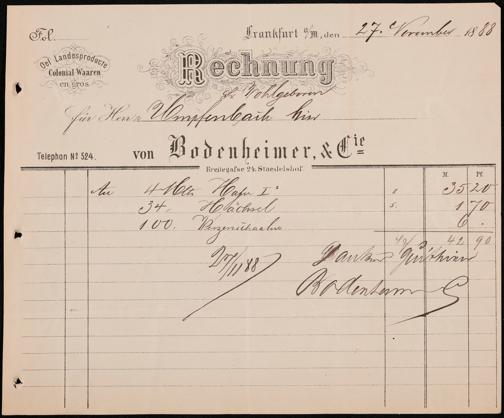 Fol.
Frankfurt a/M, den 27. November 1888
Oel Landesproducte
Colonial Waaren
en gros
Rechnung
Sr. Wohlgeboren
für Herrn Umpfenbach hier
Telephon No 524. von Bodenheimer, & Cie
Breitegasse 24. Staedelshof.
M. Pf.
An 4 Hafer I 35 20
34. Häcksel 5. 1 70
100. Weizenschaalen 6 .
42 90
27/11 88
Bodenheimer